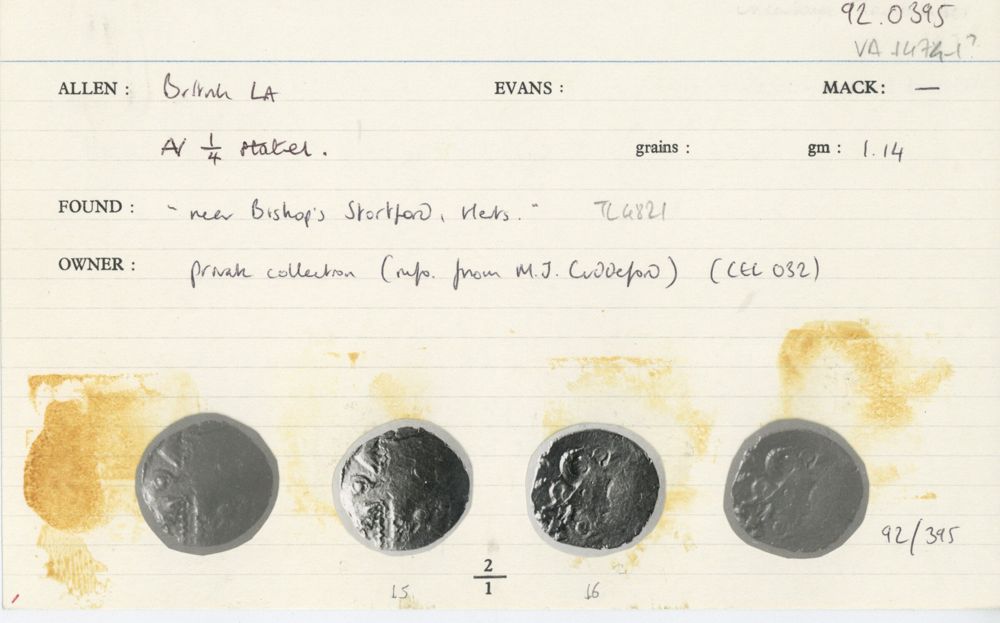 92.0395
VA 1474-1?
ALLEN : British LA EVANS : MACK: —
AV 1/4 stater. grains : gm : 1.14
FOUND : "near Bishop's Stortford, Herts." TL4821
OWNER : private collection (info. from M.J. Cuddeford) (CEC 032)
92/395
2/1
15 16